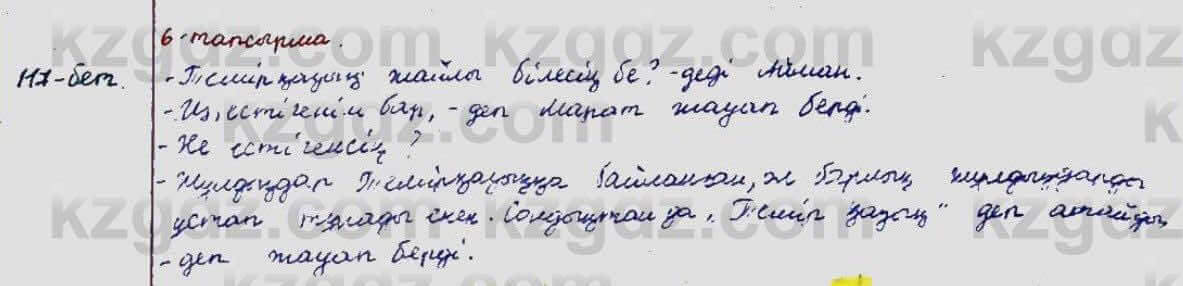 6-тапсырма.
117-бет. - Темірқазық жайлы білесің бе? - деді Айман.
- Иә, естігенім бар, - деп Марат жауап берді.
- Не естігенсің?
- Жұлдыздар Темірқазыққа байланған, ол барлық жұлдыздарды
ұстап тұрады екен. Сондықтан да "Темір қазық" деп атайды,
- деп жауап берді.
kzgdz.com